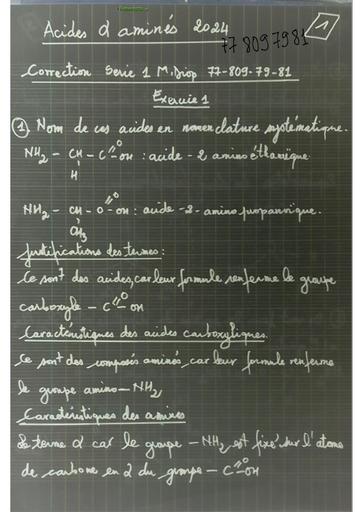 Acides α aminés 2024
1
77 809 79 81
Correction Serie 1 M. Diop 77-809-79-81
Exercice 1
① Nom de ces acides en nomenclature systématique.
NH2 - CH - C O OH : acide - 2 amino éthanoïque
H
NH2 - CH - C O OH : acide - 2 - amino propanoïque.
CH3
Justifications des termes :
Ce sont des acides, car leur formule renferme le groupe
carboxyle - C O OH
Caractéristiques des acides carboxyliques.
Ce sont des composés aminés, car leur formule renferme
le groupe amino - NH2
Caractéristiques des amines
Le terme α car le groupe - NH2 est fixé sur l'atome
de carbone en α du groupe - C O OH